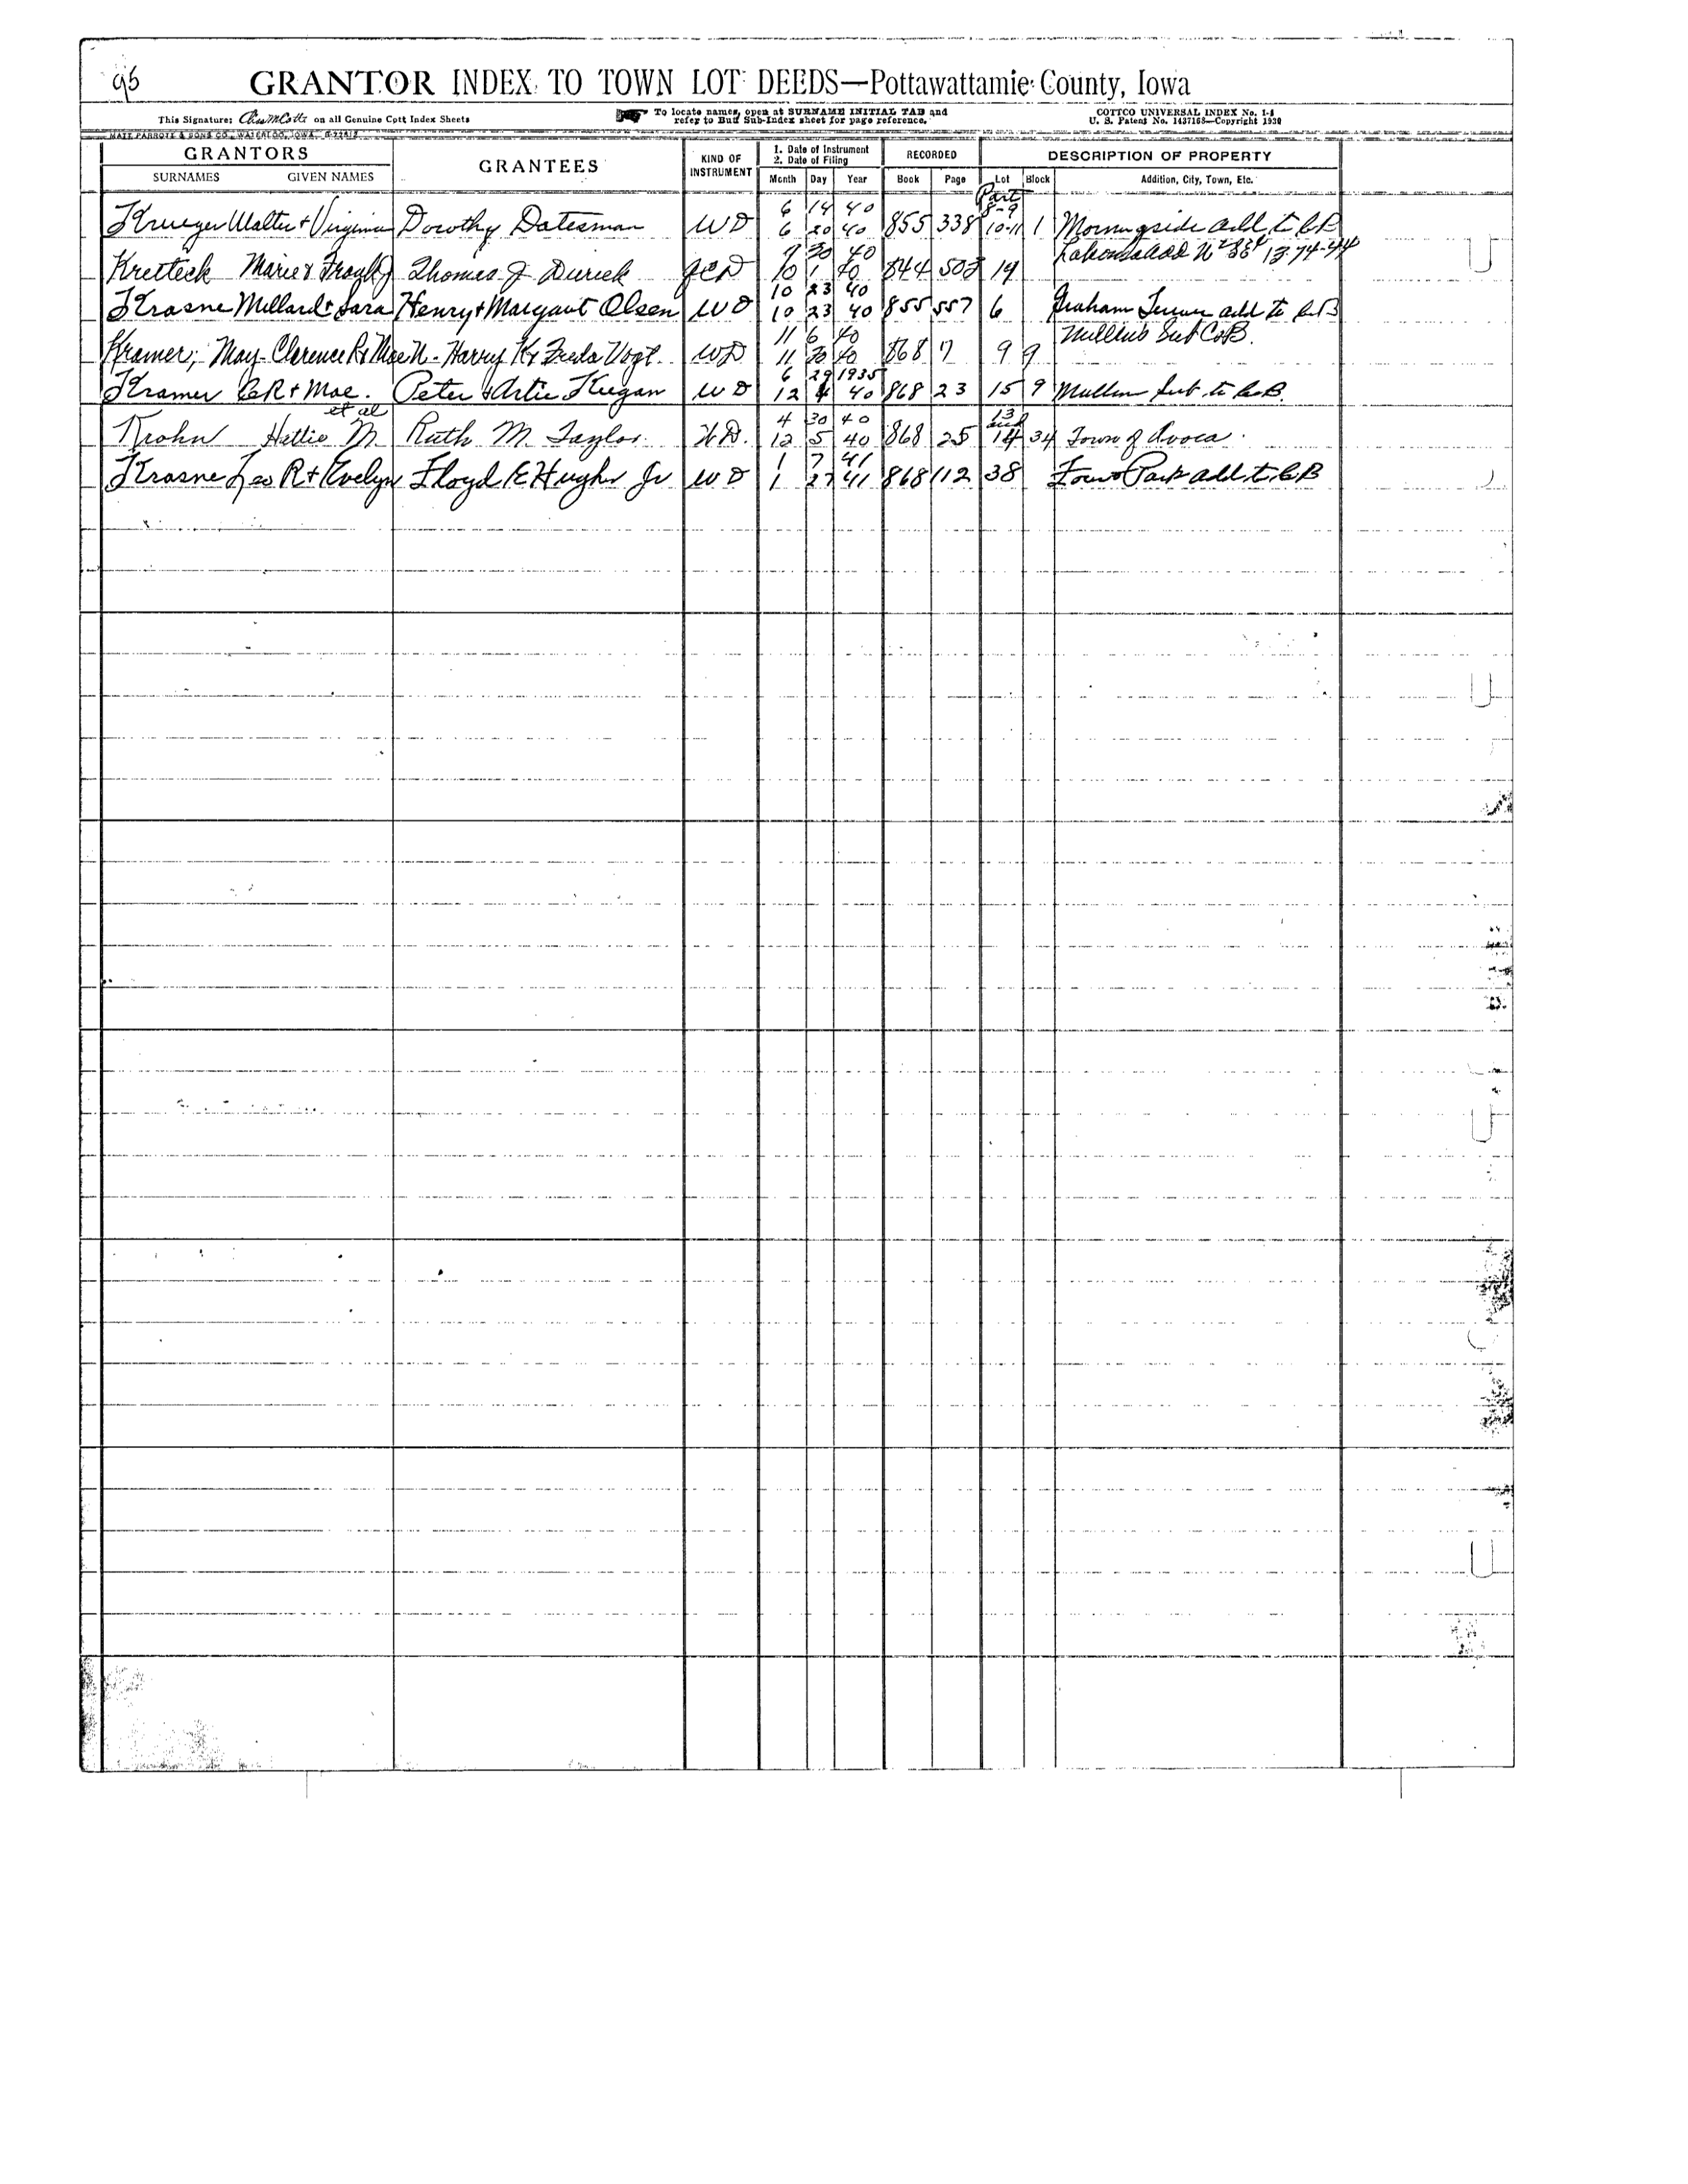 95
GRANTOR INDEX TO TOWN LOT DEEDS—Pottawattamie County, Iowa
This Signature: on all Genuine Cott Index Sheets
To locate names, open at SURNAME INITIAL TAB and
refer to Buff Sub-Index sheet for page reference.
COTTCO UNIVERSAL INDEX No. 1-I
U. S. Patent No. 1437168—Copyright 1930
MATT PARROTT & SONS CO., WATERLOO, IOWA
GRANTORS
SURNAMES GIVEN NAMES
GRANTEES
KIND OF INSTRUMENT
1. Date of Instrument
2. Date of Filing
Month Day Year
RECORDED
Book Page
DESCRIPTION OF PROPERTY
Lot Block Addition, City, Town, Etc.
6 14 40 Part 8-9
Krueger Walter + Virginia Dorothy Datesman WD 6 20 40 855 338 10-11 1 Morningside add to C B
9 30 40 13-74-44
Marie & Frank J Thomas J QCD 10 1 40 844 503 19
10 23 40
Krasne Millard + Sara Henry + Margaret Olsen WD 10 23 40 855 557 6 Graham add to C B
11 6 40 Mullins Sub C B.
Kramer, May - Clarence R & Mae N - Harry K & Freda Vogt WD 11 30 40 868 7 9 9
6 29 1935
Kramer C R + Mae. Peter & Artie Keegan WD 12 4 40 868 23 15 9 Mullin Sub to C. B.
et al 4 30 40 13 and
Krohn Hettie M Ruth M Taylor. WD. 12 5 40 868 25 14 34 Town of Avoca.
1 7 41
Krasne Leo R + Evelyn Floyd E Hughes Jr WD 1 27 41 868 112 38 Park add to C B